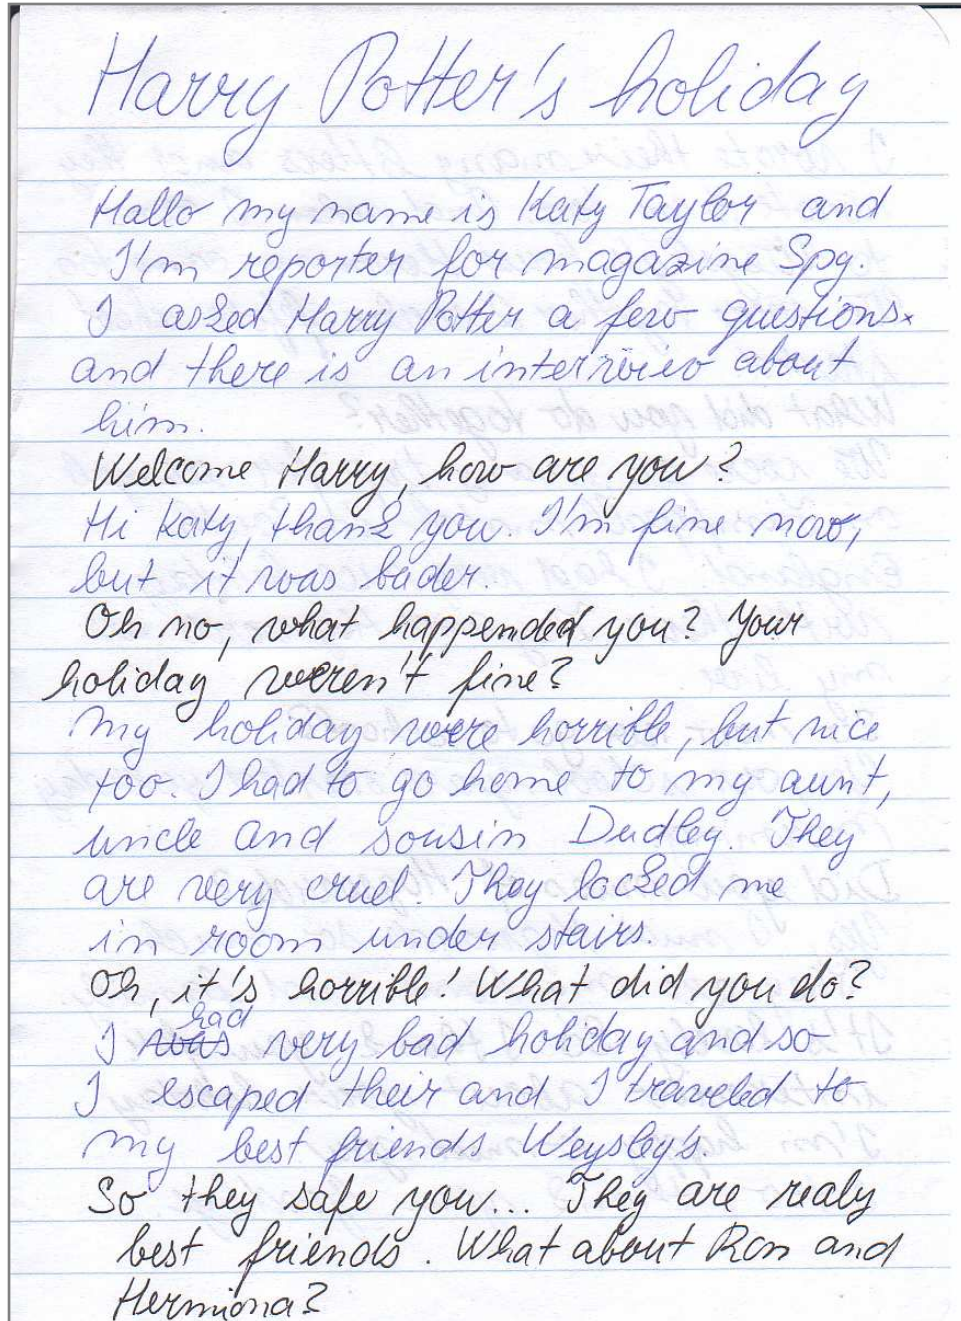 Harry Potter's holiday
Hallo my name is Katy Taylor and
I'm reporter for magazine Spy.
I asked Harry Potter a few questions.
and there is an interview about
him.
Welcome Harry, how are you?
Hi Katy, thank you. I'm fine now,
but it was bader.
Oh no, what happended you? Your
holiday weren't fine?
My holiday were horrible, but nice
too. I had to go home to my aunt,
uncle and sousin Dudley. They
are very cruel. They locked me
in room under stairs.
Oh, it's horrible! What did you do?
had
I was very bad holiday and so
I escaped their and I traveled to
my best friends Weysley's.
So they safe you... They are realy
best friends. What about Ron and
Hermiona?